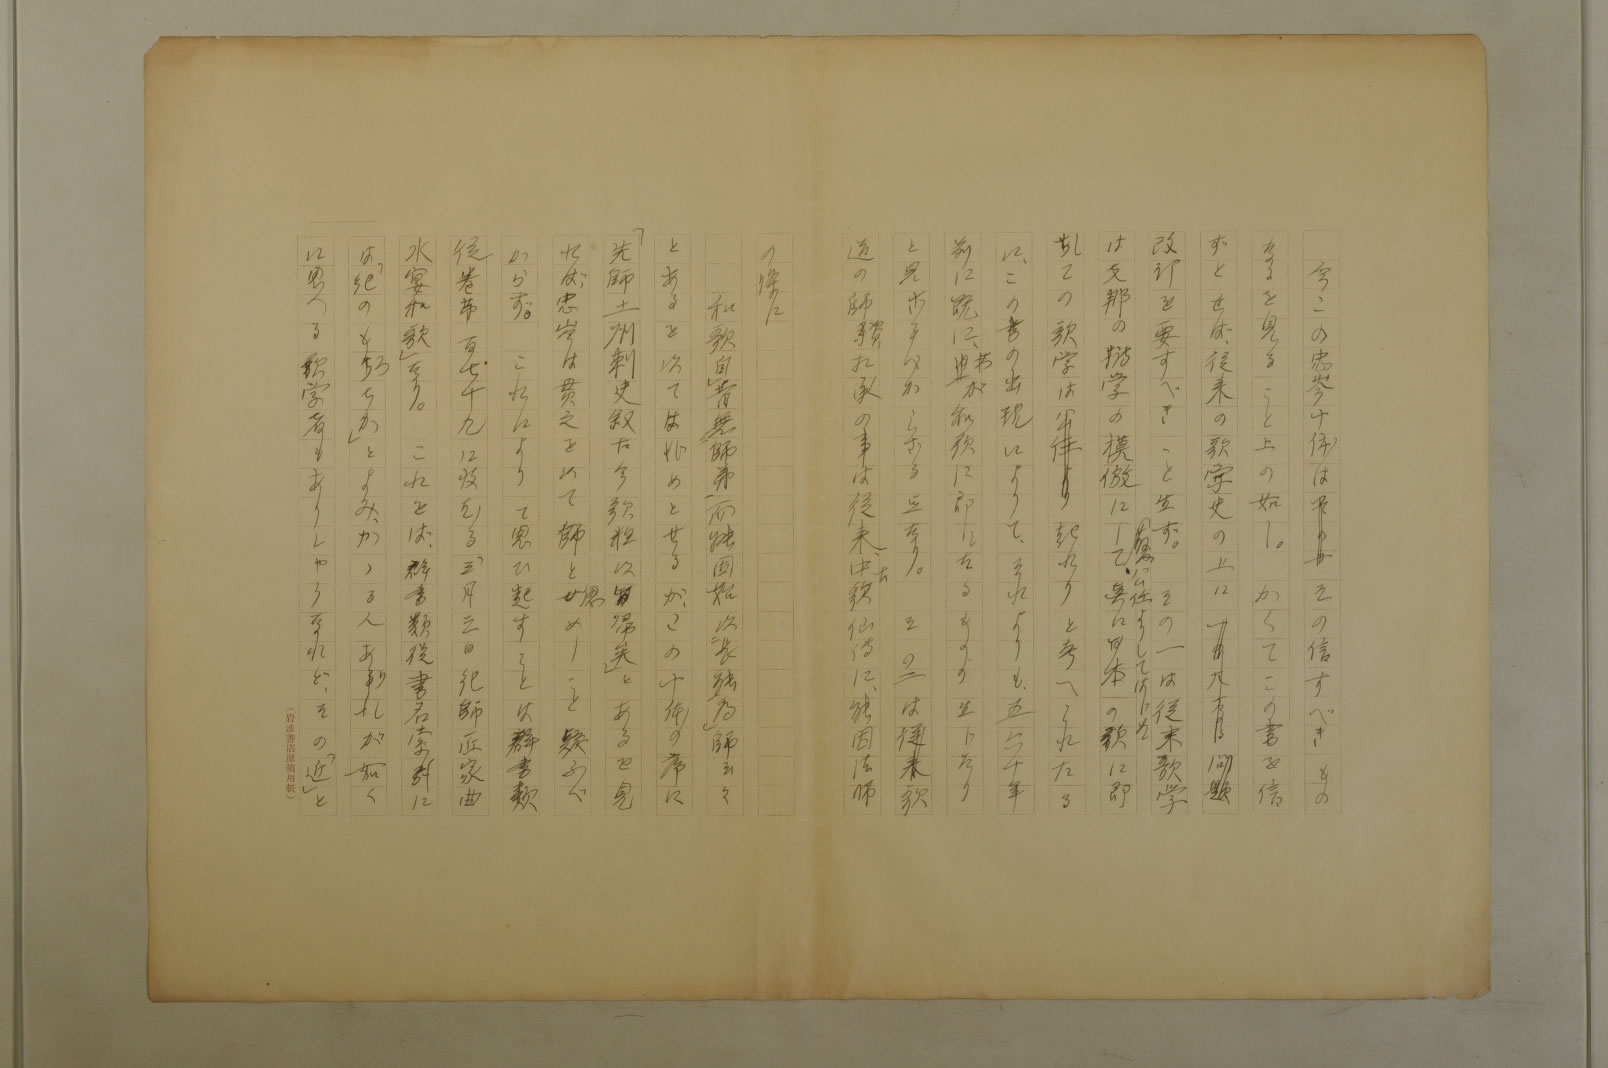 今この忠岑十体はその信すべきもの
なるを見ること上の如し。かくてこの書を信
ずとせば、従来の歌学史の上に 問題
改訂を要すべきこと生ず。その一は従来歌学
は支那の詩学の模倣にして、 の歌に即
しての歌学は公任より起れりと考へられたる
に、この書の出現によりて、それよりも五六十年
前に既に、 わが和歌に即したるものの生じたり
と見ざるべからざる点なり。その二は従来歌
道の師資相承の事は従来、中古歌仙伝に、能因法師
の条に
和歌自昔無師弟而能因始以長能為師云々
とあるを以てはじめとせるが、この十体の序に
「先師土州刺史叙古今歌粗以旨帰矣」とあるを見
れば、忠岑は貫之をめて師と認めしこと疑ふべ
からず。これによりて思ひ起すことは群書類
従巻第 に収むる「三月三日紀師匠家曲
水宴和歌」なり。これをば、群書類従書名索引に
は「紀のもろちか」とよみ、かゝる人ありしが如く
に思へる歌学者もありしやうなれど、その「近」と
(岩波書店原稿用紙)